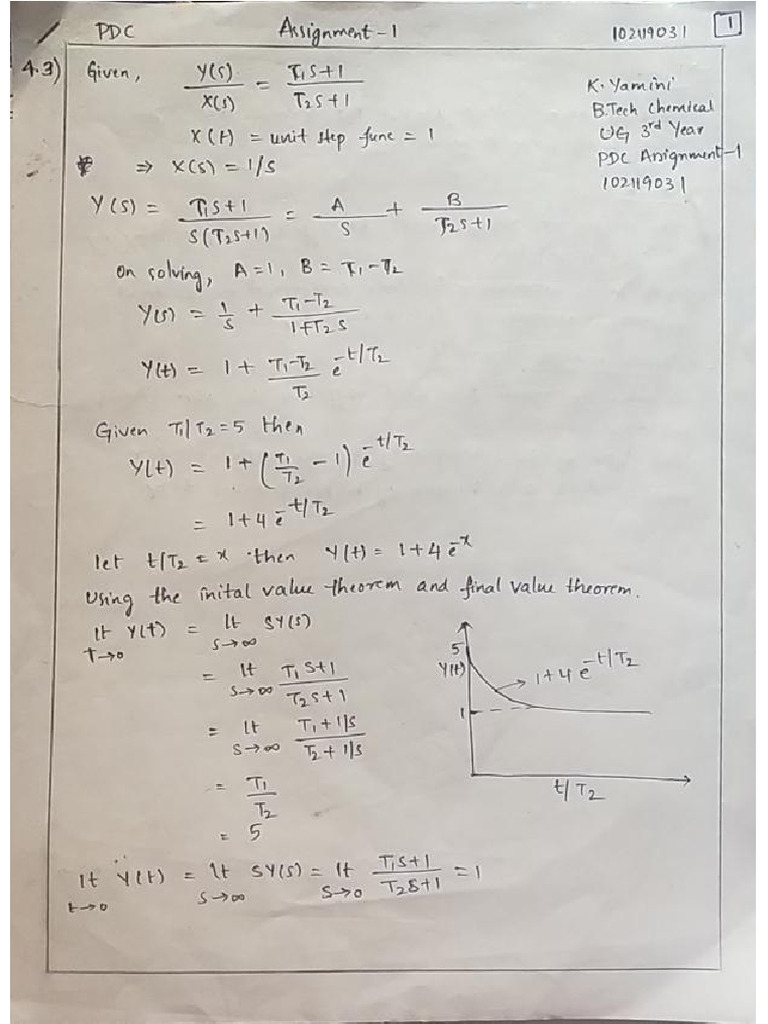 PDC Assignment-1 102119031 1
4.3) Given, Y(s)/X(s) = T₁s+1/T₂s+1
K. Yamini
B.Tech Chemical
UG 3rd Year
PDC Assignment-1
102119031
X(t) = unit step func = 1
⇒ X(s) = 1/s
Y(s) = T₁s+1/s(T₂s+1) = A/s + B/T₂s+1
On solving, A=1, B= T₁-T₂
Y(s) = 1/s + T₁-T₂/1+T₂s
Y(t) = 1 + T₁-T₂/T₂ e^-t/T₂
Given T₁/T₂=5 then
Y(t) = 1+(T₁/T₂ -1) e^-t/T₂
= 1+4e^-t/T₂
let t/T₂ = x then Y(t) = 1+4e^-x
Using the inital value theorem and final value theorem.
lt t→0 Y(t) = lt s→∞ SY(s)
= lt s→∞ T₁s+1/T₂s+1
= lt s→∞ T₁+1/s/T₂+1/s
= T₁/T₂
= 5
5
Y(t)
1+4e^-t/T₂
1
t/T₂
lt t→0 Y(t) = lt s→∞ SY(s) = lt s→0 T₁s+1/T₂s+1 = 1